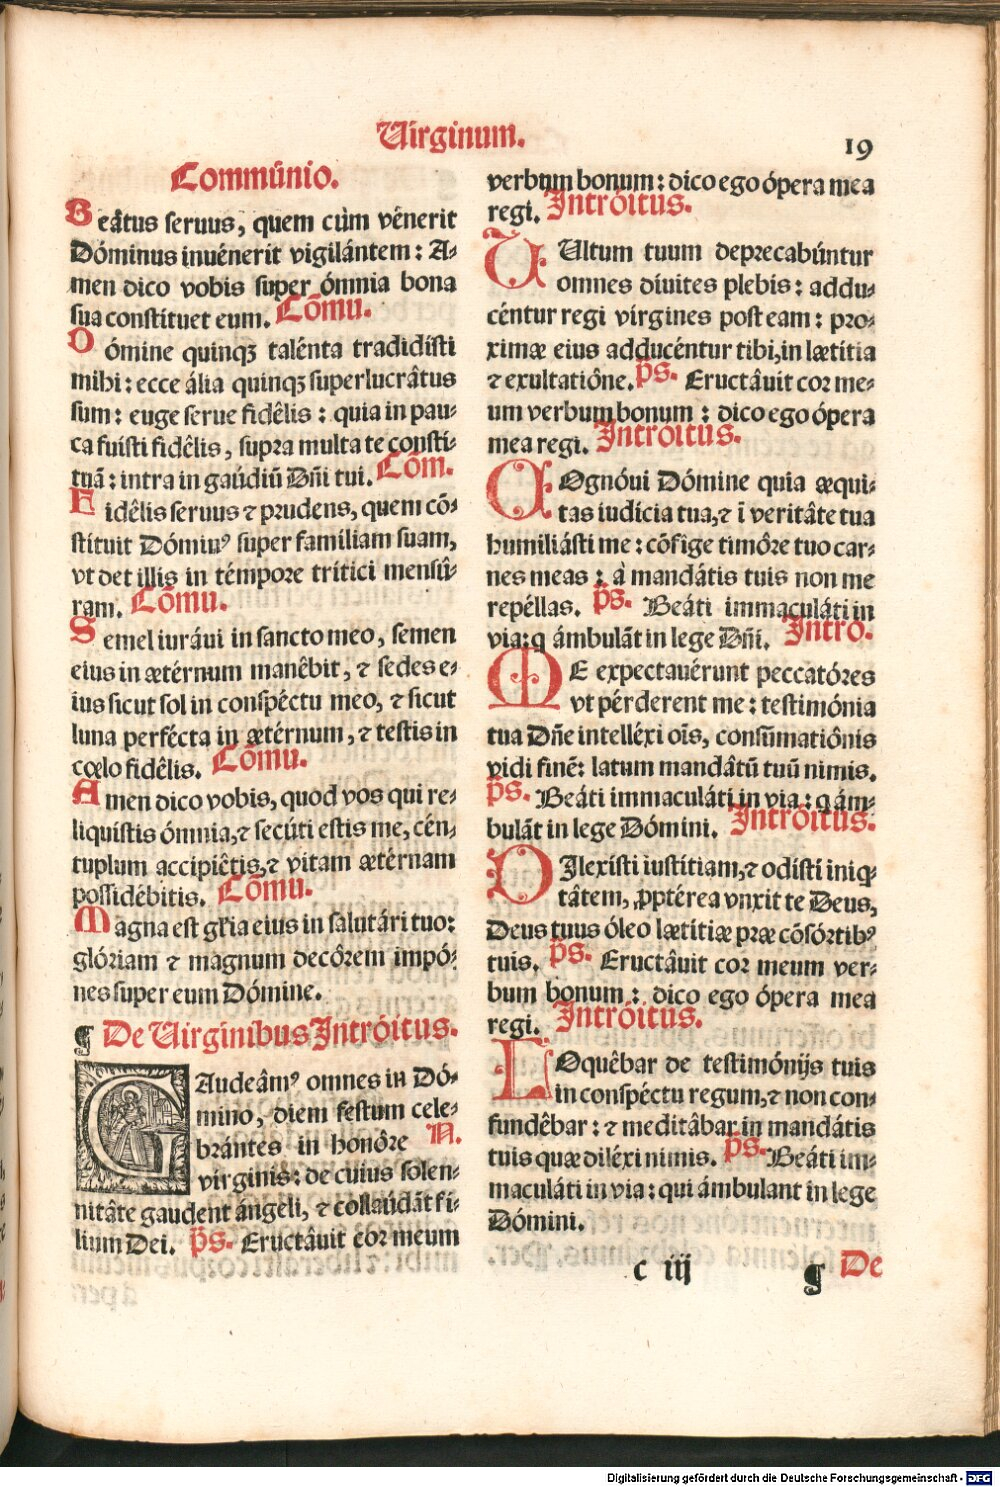 Uirginum.
19
Commũnio.
Beâtus seruus, quem cùm vênerit
Dóminus inuénerit vigilántem: A-
men dico vobis super ómnia bona
sua constituet eum. Cõmu.
Dómine quinqꝫ talénta tradidísti
mihi: ecce ália quinqꝫ superlucrâtus
sum: euge serue fidêlis: quia in pau-
ca fuísti fidêlis, supra multa te constí-
tuã: intra in gaúdiũ Dñi tui. Cõm.
Fidêlis seruus ⁊ prudens, quem cõ-
stítuit Dóminꝰ super famíliam suam,
vt det illis in témpore trítici mensû-
ram. Cõmu.
Semel iurávi in sancto meo, semen
eius in ætérnum manêbit, ⁊ sedes e-
ius sicut sol in conspéctu meo, ⁊ sicut
luna perfécta in ætérnum, ⁊ testis in
cœlo fidêlis. Cõmu.
Amen dico vobis, quod vos qui re-
liquístis ómnia, ⁊ secúti estis me, cén-
tuplum accipiêtis, ⁊ vitam ætérnam
possidébitis. Cõmu.
Magna est gľia eius in salutári tuo:
glóriam ⁊ magnum decôrem impó-
nes super eum Dómine.
¶ De Uirginibus Intróitus.
GAudeâmꝰ omnes in Dó-
mino, diem festum cele-
brántes in honôre N.
virginis: de cuius solen-
nitâte gaudent ángeli, ⁊ collaúdãt fí-
lium Dei. p̃s. Eructâuit cor meum
verbum bonum: dico ego ópera mea
regi. Intróitus.
VUltum tuum deprecabúntur
omnes diuites plebis: addu-
céntur regi vírgines post eam: pro-
ximæ eius adducéntur tibi, in lætítia
⁊ exultatiône. p̃s. Eructâuit cor me-
um verbum bonum: dico ego ópera
mea regi. Intróitus.
COgnóui Dómine quia æqui-
tas iudícia tua, ⁊ ĩ veritâte tua
humiliásti me: cõfige timôre tuo car-
nes meas: à mandâtis tuis non me
repéllas. p̃s. Beáti immaculáti in
via: q̃ ámbulãt in lege Dñi. Intró.
ME expectauérunt peccatóres
vt pérderent me: testimónia
tua Dñe intelléxi oĩs, consũmatiônis
vidi finẽ: latum mandâtũ tuũ nimis.
p̃s. Beáti immaculáti in via: q̃ ám-
bulãt in lege Dómini. Intróitus.
DIlexísti iustítiam, ⁊ odísti iniq̃-
tâtem, ꝓptérea vnxit te Deus,
Deus tuus óleo lætítiæ præ cõsórtibꝰ
tuis. p̃s. Eructâuit cor meum ver-
bum bonum: dico ego ópera mea
regi. Intróitus.
LOquêbar de testimónijs tuis
in conspéctu regum, ⁊ non con-
fundêbar: ⁊ meditâbar in mandátis
tuis quæ diléxi nimis. p̃s. Beáti im-
maculáti in via: qui ámbulant in lege
Dómini.
c iij
¶ De
Digitalisierung gefördert durch die Deutsche Forschungsgemeinschaft - DFG